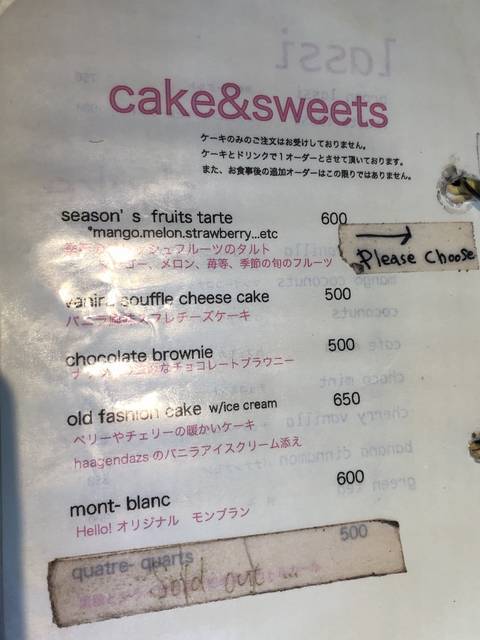 lassi
cake&sweets
ケーキのみのご注文はお受けしておりません。
ケーキとドリンクで1オーダーとさせて頂いております。
また、お食事後の追加オーダーはこの限りではありません。
season's fruits tarte 600
*mango.melon.strawberry...etc
フルーツのタルト
メロン、苺等、季節の旬のフルーツ
Please Choose
souffle cheese cake 500
スフレチーズケーキ
chocolate brownie 500
なチョコレートブラウニー
old fashion cake w/ice cream 650
ベリーやチェリーの暖かいケーキ
haagendazsのバニラアイスクリーム添え
mont- blanc 600
Hello! オリジナル モンブラン
quatre- quarts 500
Sold out...